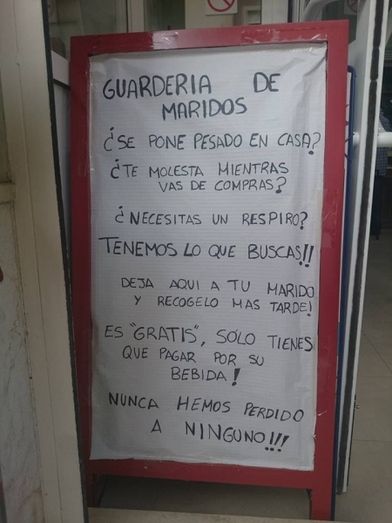 GUARDERIA DE
MARIDOS
¿SE PONE PESADO EN CASA?
¿TE MOLESTA MIENTRAS
VAS DE COMPRAS?
¿NECESITAS UN RESPIRO?
TENEMOS LO QUE BUSCAS!!
DEJA AQUI A TU MARIDO
Y RECOGELO MAS TARDE!
ES "GRATIS", SOLO TIENES
QUE PAGAR POR SU
BEBIDA!
NUNCA HEMOS PERDIDO
A NINGUNO!!!